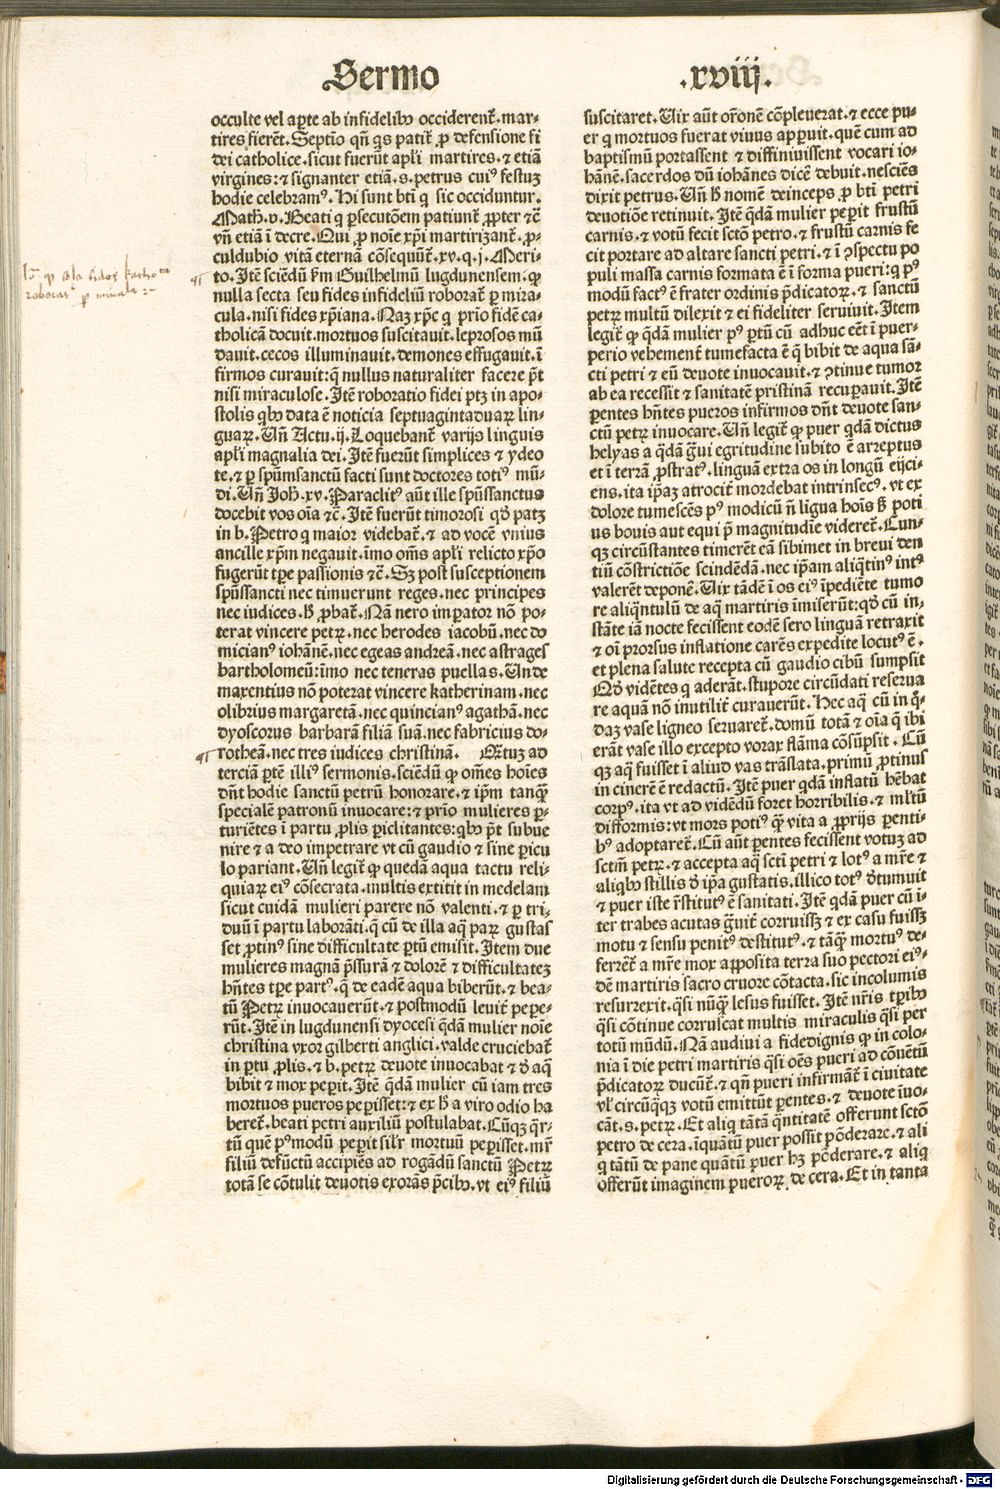 Sermo .xviij.
occulte vel aꝑte ab infidelibꝰ occiderent᷑. mar-
tires fierēt. Septīo qn̄ qs patit᷑ ꝓ defensione fi
dei catholice. sicut fuerūt apl̄i martires. ⁊ etiā
virgines: ⁊ signanter etiā. s. petrus cuiꝰ festuꝫ
hodie celebramꝰ. Hi sunt btī q̄ sic occiduntur.
Math̄. v. Beati q̄ ꝑsecutōem patiunt᷑ ꝓpter ⁊c̄
vn̄ etiā ī decre. Qui ꝓ noīe xp̄i martirizant᷑. ꝓ-
culdubio vitā eternā cōsequūt᷑. xv. q. j. Meri-
to. Itē sciēdū ẜm Guilhelmū lugdunensem. ꝙ
nulla secta seu fides infideliū roborat᷑ ꝑ mira-
cula. nisi fides xp̄iana. Naꝫ xp̄c q̄ prīo fidē ca-
tholicā docuit. mortuos suscitauit. leprosos mū
dauit. cecos illuminauit. demones effugauit. ī
firmos curauit: q̄ nullus naturaliter facere p̄t
nisi miraculose. Itē roboratio fidei ptꝫ in apo-
stolis qbꝰ data ē noticia septuagintaduaꝝ lin-
guaꝝ. Vn̄ Actu. ij. Loquebant᷑ varijs linguis
apl̄i magnalia dei. Itē fuerūt simplices ⁊ ydeo
te. ⁊ ꝑ spūmsanctū facti sunt doctores totiꝰ mū-
di. Vn̄ Joh̄. xv. Paraclitꝰ aūt ille spūssanctus
docebit vos oīa ⁊c̄. Itē fuerūt timorosi qd̄ patꝫ
in b. Petro q̄ maior videbat᷑. ⁊ ad vocē vnius
ancille xp̄m negauit. īmo om̄s apl̄i relicto xp̄o
fugerūt tp̄e passionis ⁊c̄. Sꝫ post susceptionem
spūssancti nec timuerunt reges. nec principes
nec iudices. h̄ ꝓbat᷑. Nā nero imꝑator nō po-
terat vincere petꝝ. nec herodes iacobū. nec do
micianꝰ iohānē. nec egeas andreā. nec astrages
bartholomeū: īmo nec teneras puellas. Vnde
maxentius nō poterat vincere katherinam. nec
olibrius margaretā. nec quincianꝰ agathā. nec
dyoscorus barbarā filiā suā. nec fabricius do-
rotheā. nec tres iudices christinā. Q̄tuꝫ ad
terciā ꝑtē illiꝰ sermonis. sciēdū ꝙ om̄es hoīes
dn̄t hodie sanctū petrū honorare. ⁊ ip̄m tanq̄ꝫ
specialē patronū inuocare: ⁊ prīo mulieres ꝑ-
turiētes ī partu ꝓlis ꝑiclitantes: qbꝰ p̄t subue
nire ⁊ a deo impetrare vt cū gaudio ⁊ sine ꝑicu
lo pariant. Vn̄ legit᷑ ꝙ quedā aqua tactu reli-
quiaꝝ eiꝰ cōsecrata. multis extitit in medelam
sicut cuidā mulieri parere nō valenti. ⁊ ꝑ tri-
duū ī partu laborāti. q̄ cū de illa aq̄ paꝝ gustas
set ꝓtinꝰ sine difficultate ꝑtū emisit. Item due
mulieres magnā p̄ssurā ⁊ dolorē ⁊ difficultateꝫ
hn̄tes tp̄e partꝰ. q̄ de eadē aqua biberūt. ⁊ bea-
tū Petꝝ inuocauerūt. ⁊ postmodū leuit᷑ peꝑe-
rūt. Itē in lugdunensi dyocesi q̄dā mulier noīe
christina vxor gilberti anglici. valde cruciebat᷑
in ꝑtu ꝓlis. ⁊ b. petꝝ deuote inuocabat ⁊ d̄ aq̄
bibit ⁊ mox peꝑit. Itē q̄dā mulier cū iam tres
mortuos pueros peꝑisset: ⁊ ex h̄ a viro odio ha
beret᷑. beati petri auxiliū postulabat. Cūqꝫ q̄r-
tū quē pꝰmodū peꝑit sil̄r mortuū peꝑisset. mr̄
filiū defūctū accipiēs ad rogādū sanctū Petꝝ
totā se cōtulit deuotis exorās p̄cibꝰ. vt eiꝰ filiū
suscitaret. Vix aūt orōnē cōpleuerat. ⁊ ecce pu-
er q̄ mortuos fuerat viuus apꝑuit. quē cum ad
baptismū portassent ⁊ diffiniuissent vocari io-
hānē. sacerdos dū iohānes dicē debuit. nesciēs
dixit petrus. Vn̄ h̄ nomē deinceps ꝓ btī petri
deuotiōe retinuit. Itē q̄dā mulier peꝑit frustū
carnis. ⁊ votū fecit sctō petro. ⁊ frustū carnis fe
cit portare ad altare sancti petri. ⁊ ī ꝯspectu po
puli massa carnis formata ē ī forma pueri: q̄ pꝰ
modū factꝰ ē frater ordinis p̄dicatoꝝ. ⁊ sanctū
petꝝ multū dilexit ⁊ ei fideliter seruiuit. Item
legit᷑ ꝙ q̄dā mulier pꝰ ꝑtū cū adhuc eēt ī puer-
perio vehement᷑ tumefacta ē q̄ bibit de aqua sā-
cti petri ⁊ eū deuote inuocauit. ⁊ ꝯtinue tumor
ab ea recessit ⁊ sanitatē pristinā recuꝑauit. Itē
ꝑentes hn̄tes pueros infirmos dn̄t deuote san-
ctū petꝝ inuocare. Vn̄ legit᷑ ꝙ puer q̄dā dictus
helyas a q̄dā ḡui egritudine subito ē arreptus
et ī terrā ꝓstratꝰ. linguā extra os in longū eijci-
ens. ita ip̄aꝫ atrocit᷑ mordebat intrinsecꝰ. vt ex
dolore tumescēs pꝰ modicū n̄ ligua hoīs ẜꝫ poti
us bouis aut equi p̄ magnitudīe videret᷑. Cun-
qꝫ circūstantes timerēt eā sibimet in breui den
tiū cōstrictiōe scindēdā. nec ip̄am aliq̄tinꝰ intꝰ
valerēt deponē. Vix tādē ī os eiꝰ īpediēte tumo
re aliq̄ntulū de aq̄ martiris īmiserūt: qd̄ cū in-
stāte iā nocte fecissent eodē sero linguā retraxit
⁊ oī prorsus inflatione carēs expedite locutꝰ ē.
et plena salute recepta cū gaudio cibū sumpsit
Qd̄ vidētes q̄ aderāt. stupore circūdati reserua
re aquā nō inutilit᷑ curauerūt. Hec aq̄ cū in q̄-
daꝫ vase ligneo seruaret᷑. domū totā ⁊ oīa q̄ ibi
erāt vase illo excepto vorax flāma cōsūpsit. Cū
qꝫ aq̄ fuisset ī aliud vas trāslata. primū ꝓtinus
in cinerē ē redactū. Itē puer q̄dā inflatū hēbat
corpꝰ. ita vt ad vidēdū foret horribilis. ⁊ ml̄tū
difformis: vt mors potiꝰ q̄ꝫ vita a ꝓprijs ꝑenti-
bꝰ adoptaret᷑. Cū aūt ꝑentes fecissent votuꝫ ad
sctm̄ petꝝ. ⁊ accepta aq̄ sctī petri ⁊ lotꝰ a mr̄e ⁊
aliqbꝰ stillis d̄ ip̄a gustatis. illico totꝰ d̄tumuit
⁊ puer iste r̄stitutꝰ ē sanitati. Itē q̄dā puer cū ī-
ter trabes acutas ḡuit᷑ corruissꝫ ⁊ ex casu fuissꝫ
motu ⁊ sensu penitꝰ destitutꝰ. ⁊ tāq̄ꝫ mortuꝰ de-
ferret᷑ a mr̄e mox apposita terra suo pectori eiꝰ-
dē martiris sacro cruore cōtacta. sic incolumis
resurrexit. q̄si nūq̄ꝫ lesus fuisset. Itē nr̄is tꝑibꝰ
q̄si cōtinue corruscat multis miraculis q̄si per
totū mūdū. Nā audiui a fidedignis ꝙ in colo-
nia ī die petri martiris q̄si oēs pueri ad cōuētū
p̄dicatoꝝ ducūt᷑. ⁊ qn̄ pueri infirmāt᷑ ī ciuitate
vl̄ circūq̄qꝫ votū emittūt ꝑentes. ⁊ deuote īuo-
cāt. s. petꝝ. Et aliq̄ tātā q̄ntitatē offerunt sctō
petro de cera. īquātū puer possit pōderare. ⁊ ali
q̄ tātū de pane quātū puer hꝫ pōderare. ⁊ aliq̄
offerūt imaginem pueroꝝ de cera. Et in tanta
Digitalisierung gefördert durch die Deutsche Forschungsgemeinschaft - DFG